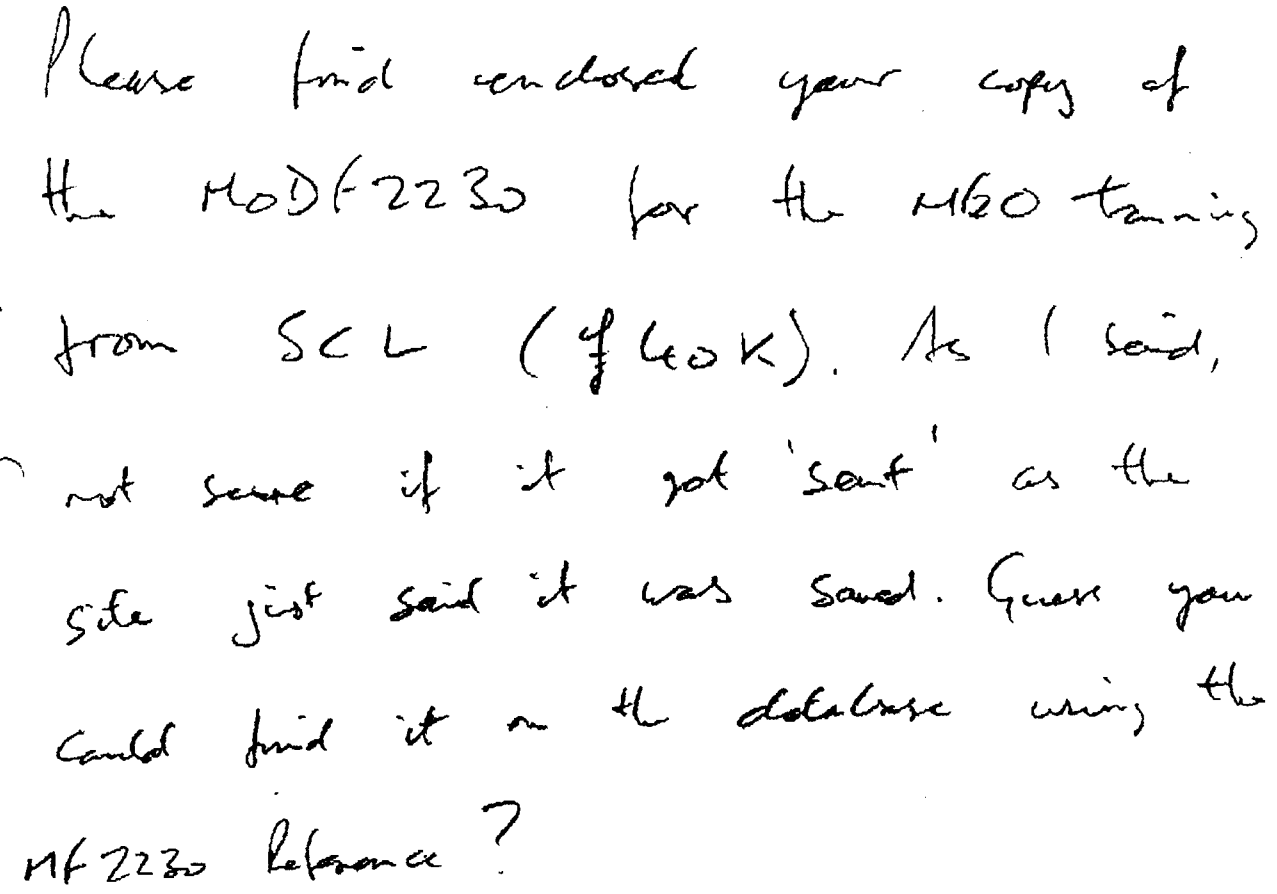 Please find enclosed your copy of
the MoDF2230 for the training
from SCL (£40K). As I said,
not sure if it got 'sent' as the
site just said it was saved. Guess you
could find it on the database using the
MF2230 Reference?